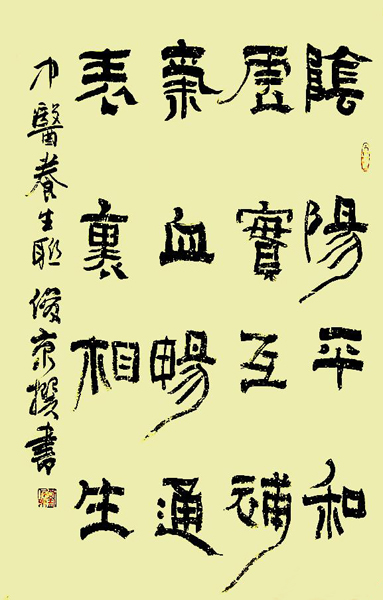 陰陽平和
虛實互補
氣血暢通
表裏相生
中醫養生聯 俊京撰書